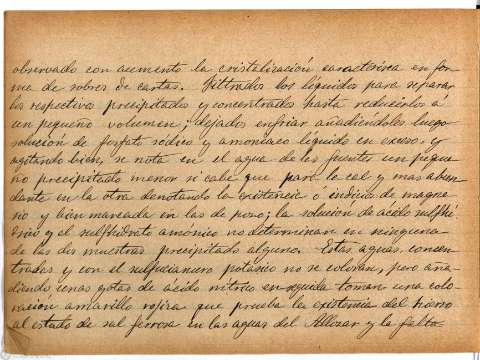 observado con aumento la cristalización caracterisca en for-
ma de sobres de cartas. Filtrados los líquidos para separar
los respectivos precipitados y concentrados hasta reducirlos á
un pequeño volumen; dejados enfriar añadiéndoles luego
solución de fosfato sódico y amoniaco líquido en exceso y
agitando bien, se nota en el agua de las fuentes un peque
ño precipitado menor si cabe que para la cal y mas abun
dante en la otra denotando la existencia ó indicio de magne
sio y bien marcada en las de pozo; la solución de ácido sulfhí
drico y el sulfhidrato amónico no determinan en ninguna
de las dos muestras precipitado alguno. Estas aguas concen
tradas y con el sulfocianuro potásico no se coloran, pero aña
diendo unas gotas de ácido nítrico en seguida toman una colo
ración amarillo rojiza que prueba la existencia del hierro
al estado de sal ferrosa en las aguas del Allozar y la falta